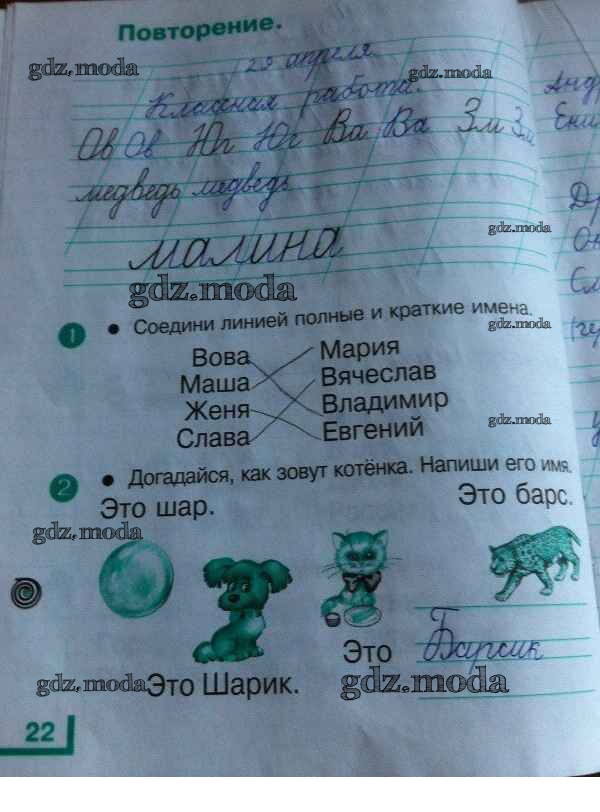 Повторение.
gdz.moda
29 апреля.
gdz.moda
Классная работа.
Ов Ов Юг Юг Ва Ва Зм Зм
медведь медведь
gdz.moda
малина
gdz.moda
1 • Соедини линией полные и краткие имена.
gdz.moda
Вова Мария
Маша Вячеслав
Женя Владимир
gdz.moda
Слава Евгений
2 • Догадайся, как зовут котёнка. Напиши его имя.
Это шар. Это барс.
gdz.moda
Это Барсик
gdz.moda Это Шарик. gdz.moda
22